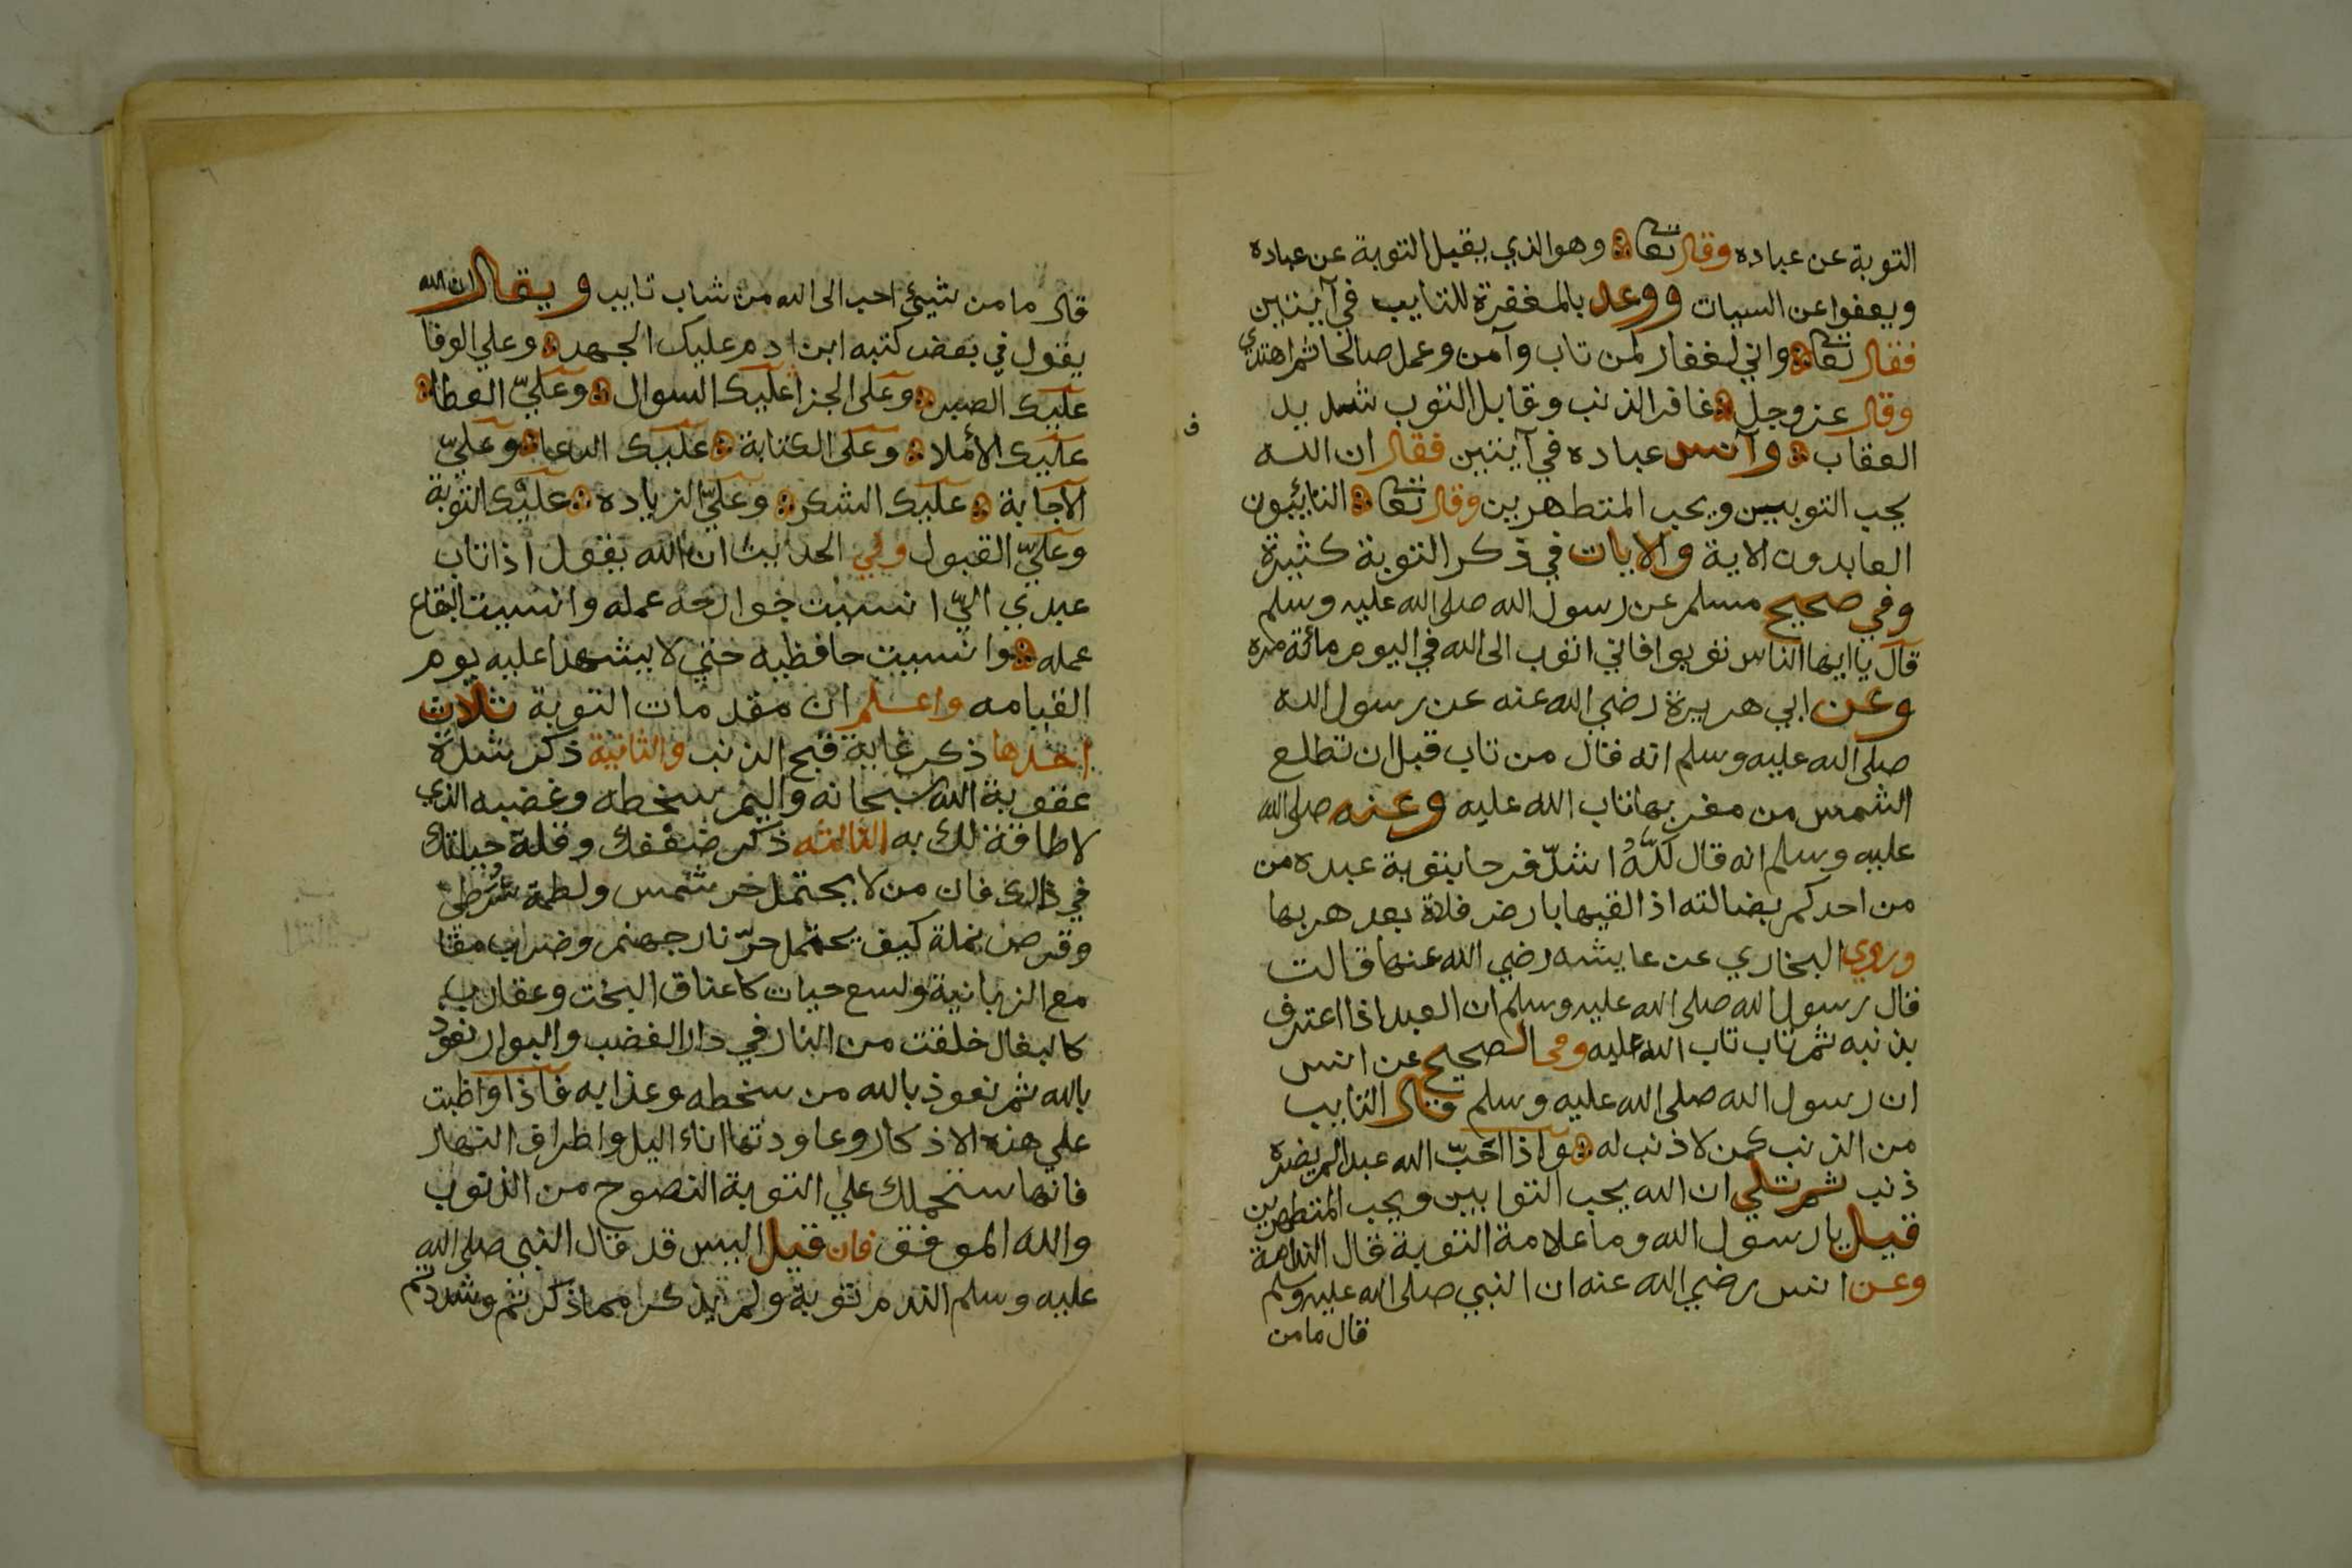 التوبة عن عباده وقال تعا وهو الذي يقبل التوبة عن عباده
ويعفوا عن السيات ووعد بالمغفرة للتايب في آيتين
فقال تعا واني لغفار لمن تاب وآمن وعمل صالحا ثم اهتدي
وقال عز وجل غافر الذنب وقابل التوب شديد
العقاب وآنس عباده في آيتين فقال ان الله
يحب التوبيين ويحب المتطهرين وقال تعا التائبون
العابدون الاية والايات في ذكر التوبة كثيرة
وفي صحيح مسلم عن رسول الله صلى الله عليه وسلم
قال يا ايها الناس توبوا فاني اتوب الى الله في اليوم مائة مره
وعن ابي هريرة رضي الله عنه عن رسول الله
صلى الله عليه وسلم انه قال من تاب قبل ان تطلع
الشمس من مغربها تاب الله عليه وعنه صلى الله
عليه وسلم انه قال للّهُ اشدّ فرحا بتوبة عبده من
من احدكم بضالته اذا لقيها بارض فلاة بعد هربها
وروي البخاري عن عايشه رضي الله عنها قالت
قال رسول الله صلى الله عليه وسلم ان العبد اذا اعترف
بذنبه ثم تاب تاب الله عليه وفى الصحيح عن انس
ان رسول الله صلى الله عليه وسلم قال التايب
من الذنب كمن لا ذنب له واذا احبّ الله عبدا لم يضره
ذنب ثم تلي ان الله يحب التوابين ويحب المتطهرين
قيل يا رسول الله وما علامة التوبة قال الندامة
وعن انس رضي الله عنه ان النبي صلى الله عليه وسلم
قال ما من
ف
قال ما من شيئ احب الى الله من شاب تايب ويقال ان الله
يقول في بعض كتبه ابن ادم عليك الجهد وعلي الوفا
عليك الصبر وعلى الجزا عليك السوال وعليّ العطا
عليك الأملا وعلى الكتابة عليك الدعا وعليّ
الاجابة عليك الشكر وعليّ الزياده عليك التوبة
وعليّ القبول وفي الحديث ان الله يقول اذا تاب
عبدي اليّ انسيت جوارحه عمله وانسيت البقاع
عمله وانسيت حافظيه حتي لا يشهدا عليه يوم
القيامه واعلم ان مقدمات التوبة ثلاث
احدها ذكر غاية قبح الذنب والثانية ذكر شدّة
عقوبة الله سبحانه واليم سخطه وغضبه الذي
لا طاقة لك به الثالثه ذكر ضعفك وقلة حيلتك
في ذالك فان من لا يحتمل حر شمس ولطمة شرطي
وقرص نملة كيف يحتمل حرّ نار جهنم وضراب مقا
مع الزبانية ولسع حيات كاعناق البخت وعقارب
كالبغال خلقت من النار في دار الغضب والبوار نعوذ
بالله ثم نعوذ بالله من سخطه وعذابه فاذا واظبت
علي هذه الاذكار وعاودتها اناء اليل واطراق النهار
فانها ستحملك علي التوبة النصوح من الذنوب
والله الموفق فان قيل اليس قد قال النبي صلى الله
عليه وسلم الندم توبة ولم يذكر مما ذكرتم وشددتم